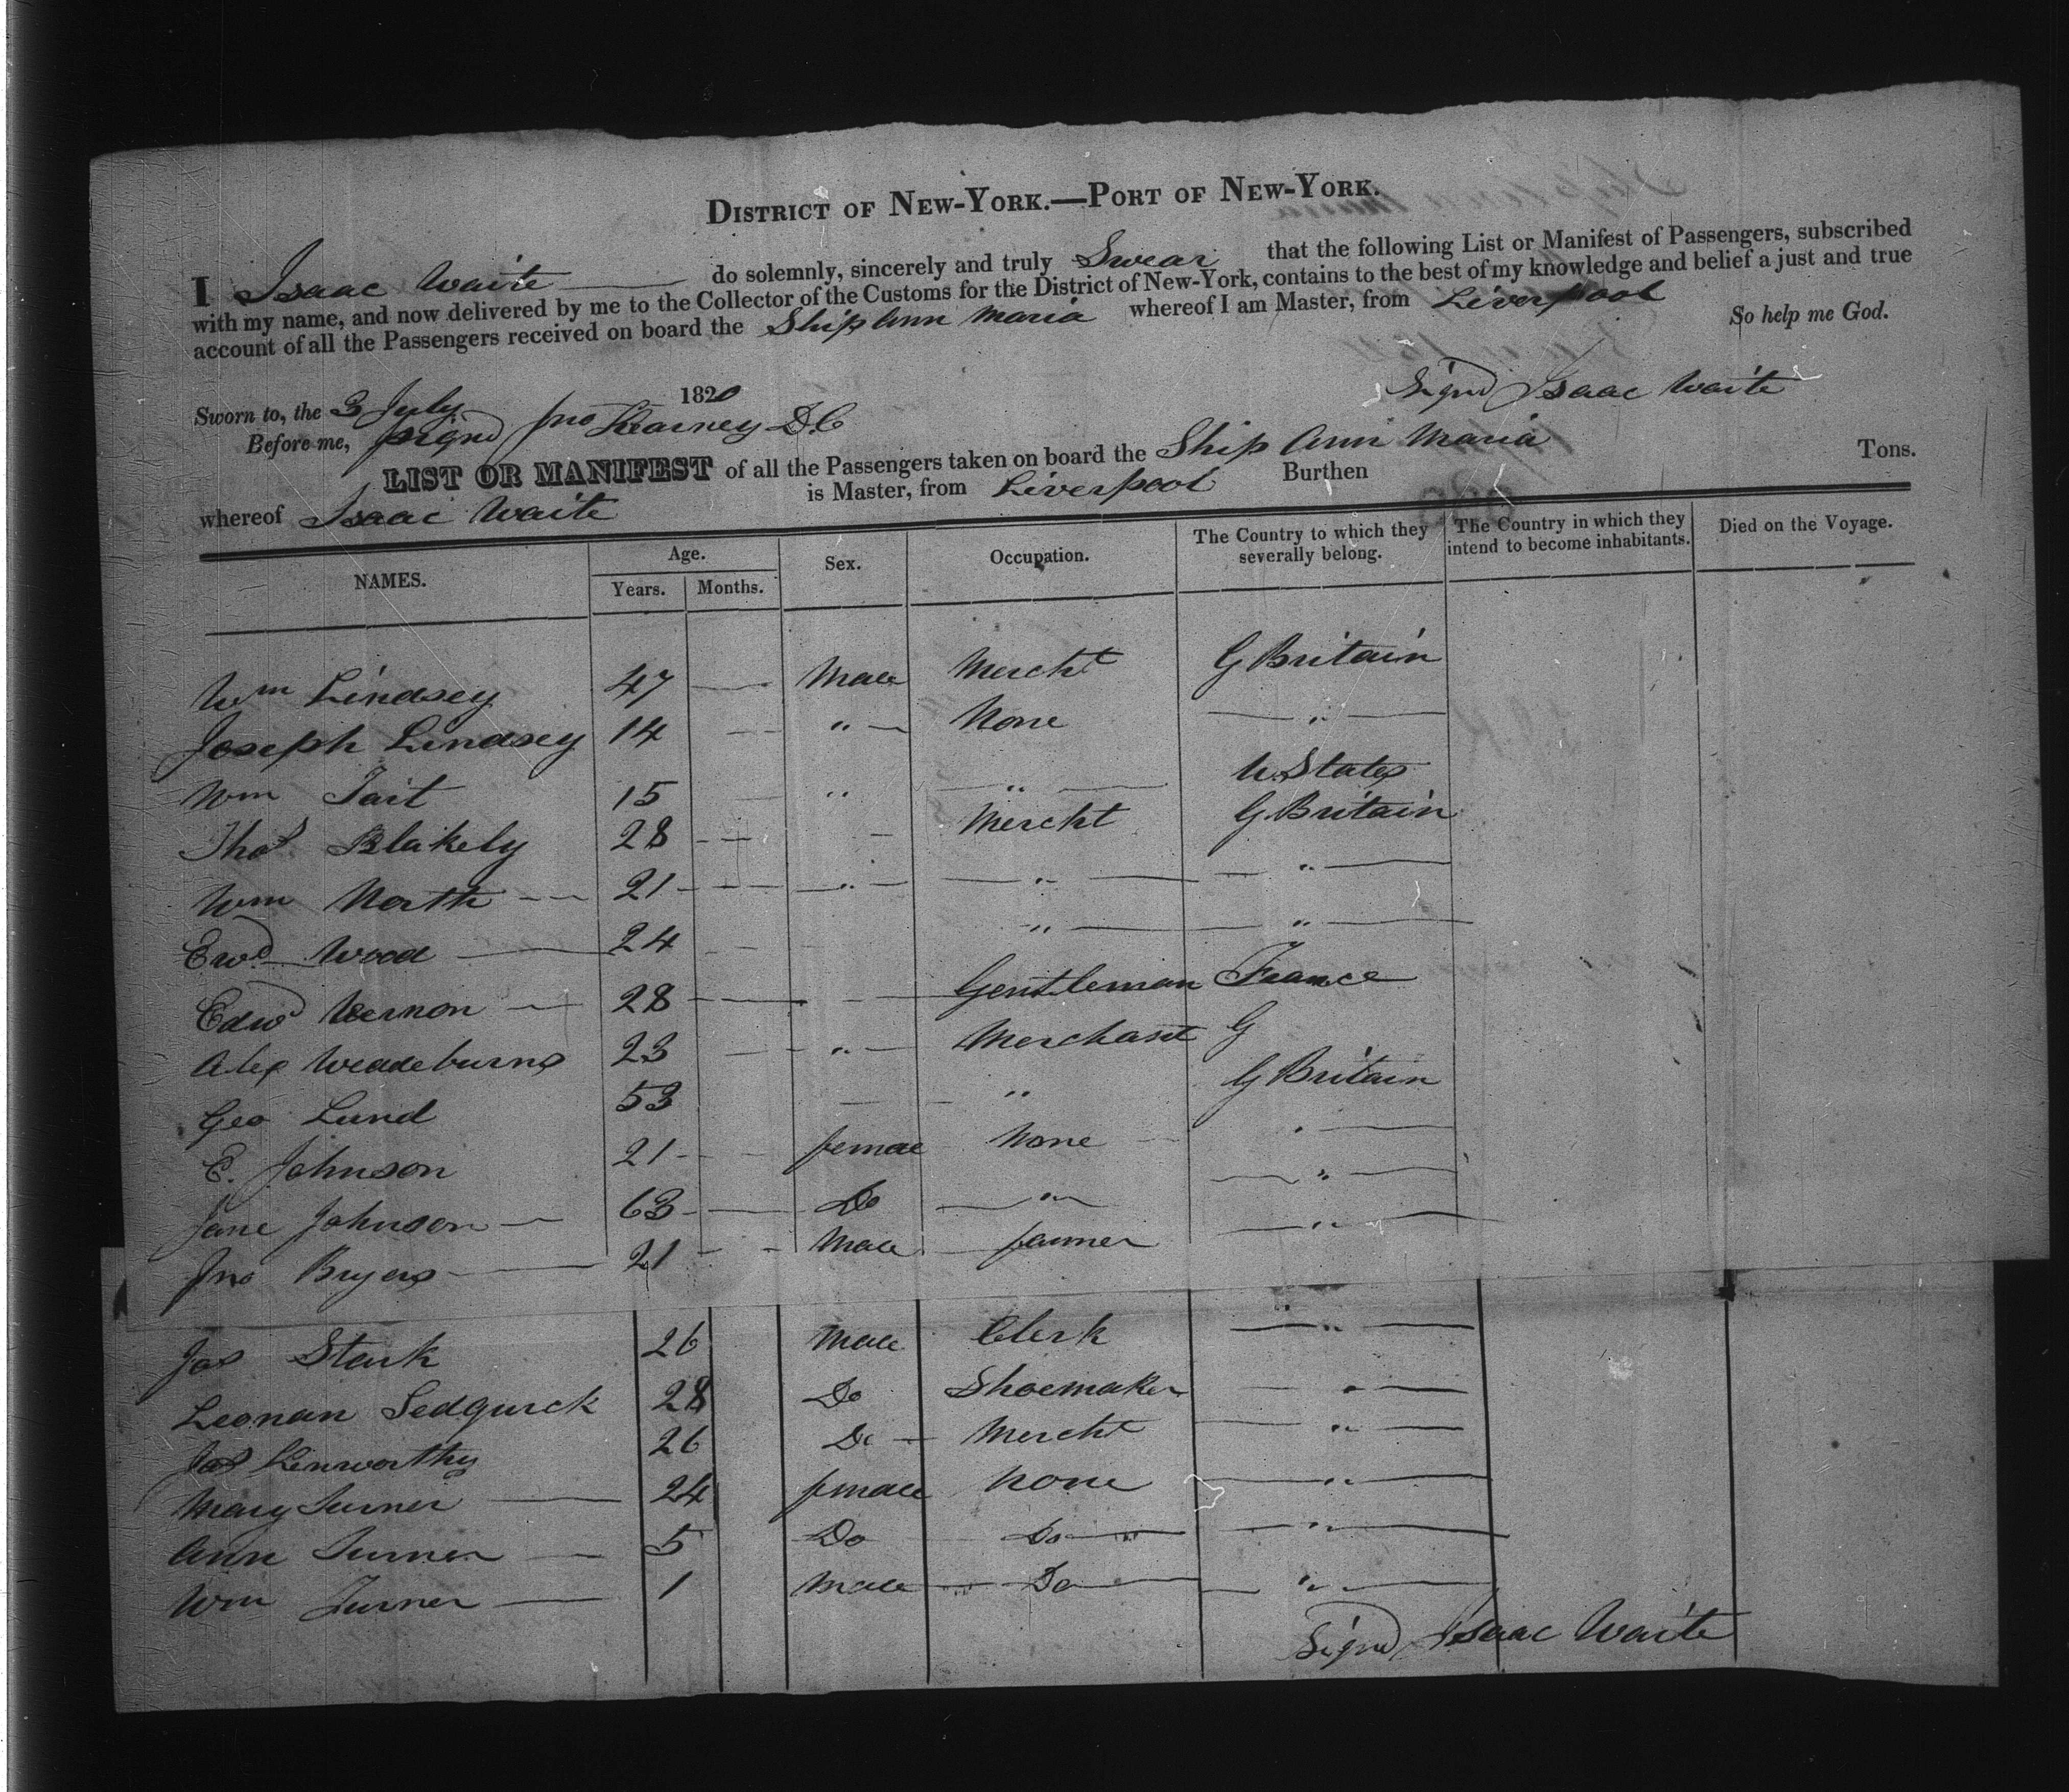 District of New-York.—Port of New-York.
I Isaac Waite do solemnly, sincerely and truly Swear that the following List or Manifest of Passengers, subscribed
with my name, and now delivered by me to the Collector of the Customs for the District of New-York, contains to the best of my knowledge and belief a just and true
account of all the Passengers received on board the Ship Ann Maria whereof I am Master, from Liverpool So help me God.
Sworn to, the 3 July 1820 Signd Isaac Waite
Before me, signd Jno Kearney D.C
LIST OR MANIFEST of all the Passengers taken on board the Ship Ann Maria
whereof Isaac Waite is Master, from Liverpool Burthen Tons.
NAMES. Age. Years. Months. Sex. Occupation. The Country to which they severally belong. The Country in which they intend to become inhabitants. Died on the Voyage.
Wm Lindsey 47 — Male Mercht G Britain
Joseph Lindsey 14 — " — None — " —
Wm Tait 15 — " — " — U. States
Thos Blakely 28 - - - Mercht G Britain
Wm North - - 21 - - - — " — — " — — " —
Ewd Wood — 24 - - " — — " —
Edwd Vernon — 28 - — - - Gentleman France
Alex Weddeburns 23 — - " — Merchant G
Geo Lund 53 — " G Britain
E. Johnson 21 - - - female None - " —
Jane Johnson — 63 - — Do — " — — " —
Jno Bryers — 21 - - Male farmer — " —
Jas Stark 26 Male Clerk — " —
Leonan Sedgwick 28 Do Shoemaker — " —
Jas Kenworthy 26 Do — Mercht — " —
Mary Turner — 24 female None — " —
Ann Turner — 5 Do Do — " — " —
Wm Turner — 1 Male — Do — — " —
Signd Isaac Waite